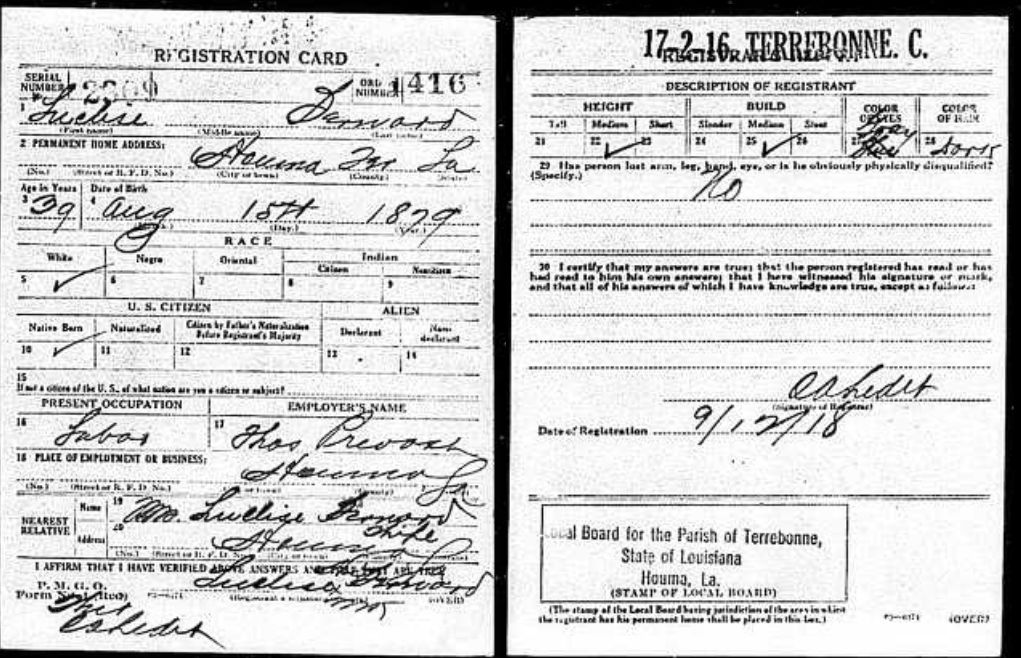 REGISTRATION CARD
SERIAL NUMBER 2309 ORDER NUMBER 1416
1 Luclise Bernard
(First name) (Middle name) (Last name)
2 PERMANENT HOME ADDRESS:
Houma La
(No.) (Street or R. F. D. No.) (City or town) (County) (State)
Age in Years Date of Birth
3 39 4 Aug 15th 1879
(Month.) (Day.) (Year.)
RACE
White Negro Oriental Indian
Citizen Noncitizen
5 ✓ 6 7 8 9
U. S. CITIZEN ALIEN
Native Born Naturalized Citizen by Father's Naturalization Before Registrant's Majority Declarant Non-declarant
10 ✓ 11 12 13 14
15
If not a citizen of the U. S., of what nation are you a citizen or subject?
PRESENT OCCUPATION EMPLOYER'S NAME
16 Labor 17 Thos Prevost
18 PLACE OF EMPLOYMENT OR BUSINESS:
Houma La
(No.) (Street or R. F. D. No.) (City or town) (County) (State)
NEAREST RELATIVE Name 19 Mrs. Luclise Bernard
Wife
Address 20 Houma
(No.) (Street or R. F. D. No.) (City or town)
I AFFIRM THAT I HAVE VERIFIED ABOVE ANSWERS AND THAT THEY ARE TRUE
P. M. G. O.
Form No. 1 (Red) Luclise Bernard
(Registrant's signature or mark) (OVER)
17-2-16 TERREBONNE. C.
REGISTRAR'S REPORT
DESCRIPTION OF REGISTRANT
HEIGHT BUILD COLOR OF EYES COLOR OF HAIR
Tall Medium Short Slender Medium Stout
21 22 ✓ 23 24 25 ✓ 26 27 Gray 28 Dark
29 Has person lost arm, leg, hand, eye, or is he obviously physically disqualified?
(Specify.) No
30 I certify that my answers are true; that the person registered has read or has
had read to him his own answers; that I have witnessed his signature or mark,
and that all of his answers of which I have knowledge are true, except as follows:
C S Ledet
(Signature of Registrar)
Date of Registration 9/12/18
Local Board for the Parish of Terrebonne,
State of Louisiana
Houma, La.
(STAMP OF LOCAL BOARD)
(The stamp of the Local Board having jurisdiction of the area in which
the registrant has his permanent home shall be placed in this box.) (OVER)